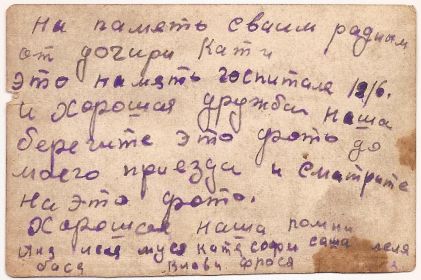 На память сваим радным
от дочири Кати
это память госпиталя 12/6.
и хорошая дружба наша
берегите это фото до
моего приезда и сматрите
на это фото.
Хорошая наша помни
муся катя софи саша леля
бася фрося